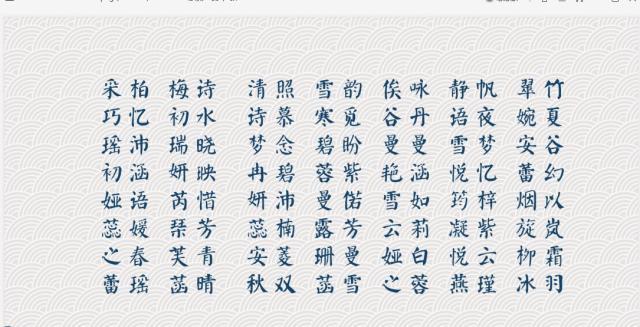 采柏 梅诗 清照 雪韵 俟咏 静帆 翠竹
巧忆 初水 诗慕 寒觅 谷丹 语夜 婉夏
瑶沛 瑞晓 梦念 碧盼 曼曼 雪梦 安谷
初涵 妍映 冉碧 蓉紫 艳涵 悦忆 蕾幻
娅语 芮惜 妍沛 曼偌 雪如 筠梓 烟以
蕊媛 琹芳 蕊楠 露芳 云莉 凝紫 旋岚
之春 芙青 安菱 珊曼 娅白 悦云 柳霜
蕾瑶 菡晴 秋双 菡雪 之蓉 燕瑾 冰羽